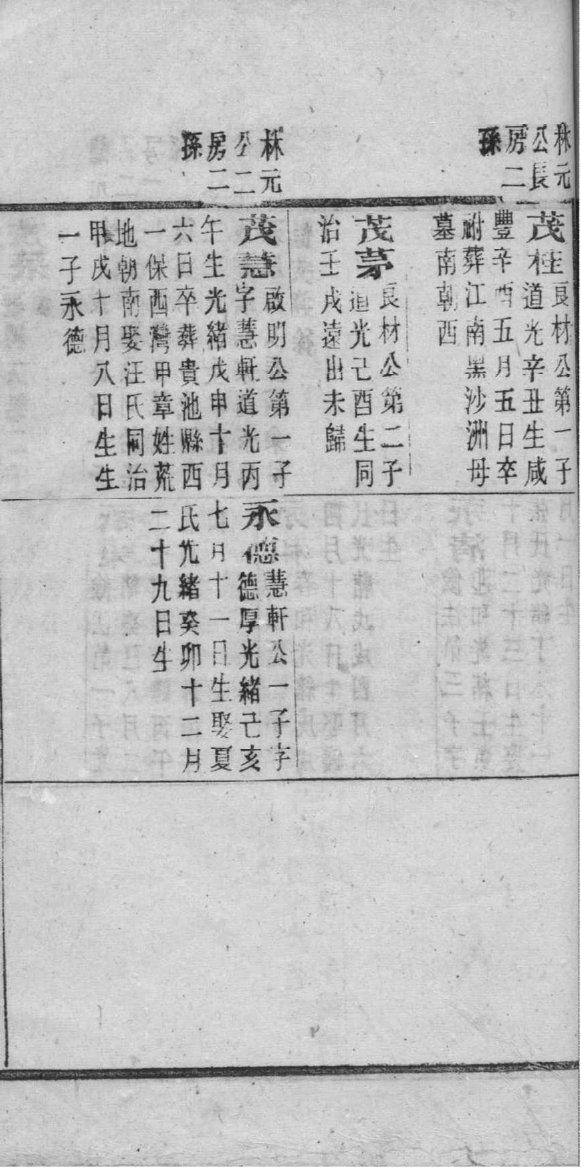 林元
公長
房二
孫
茂桂良材公第一子
道光辛丑生咸
豐辛酉五月五日卒
祔葬江南黑沙洲母
墓南朝西
茂茅良材公第二子
道光己酉生同
治壬戌遠出未歸
林元
公二
房二
孫
茂慧啟明公第一子
字慧軒道光丙
午生光緒戊申十月
六日卒葬貴池縣西
一保西灣甲章姓荒
地朝南娶汪氏同治
甲戌十月八日生生
一子永德
永德慧軒公一子字
德厚光緒己亥
七月十一日生娶夏
氏光緒癸卯十二月
二十九日生